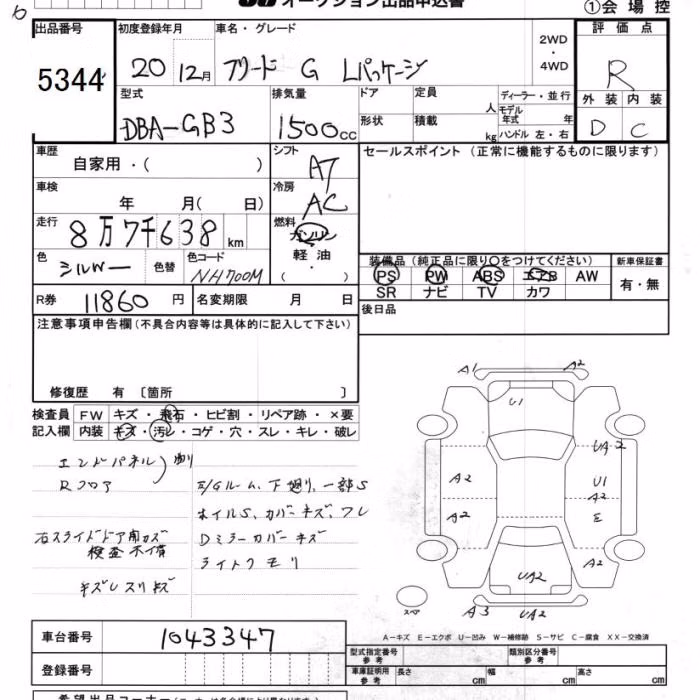 オークション出品申込書
①会場控
出品番号 初度登録年月 車名・グレード 評価点
5344 20 12月 フリード G Lパッケージ 2WD・4WD R
型式 排気量 ドア 定員 人 ディーラー・並行 外装 内装
DBA-GB3 1500cc 形状 積載 kg モデル年式 年 ハンドル 左・右 D C
車歴 シフト セールスポイント (正常に機能するものに限ります)
自家用・( ) AT
車検 冷房
年 月( 日) AC
走行 燃料
8万7千638km ガソリン
色 色替 色コード 軽油
シルバー NH700M ( ・ )
装備品 (純正品に限り〇をつけてください) 新車保証書
PS PW ABS エアB AW 有・無
SR ナビ TV カワ
R券 11860円 名変期限 月 日 後日品
注意事項申告欄 (不具合内容等は具体的に記入して下さい)
修復歴 有 〔箇所 〕
検査員 FW キズ・飛石・ヒビ割・リペア跡・×要
記入欄 内装 キズ・汚レ・コゲ・穴・スレ・キレ・破レ
エンドパネル
Rフロア
E/Gルーム、下廻り、一部S
ホイルS、カバーキズ、フレ
右スライドドア用カズ Dミラーカバーキズ
検査不備 ライトクモリ
キズしスリキズ
A1 A2
U1
UA2
A2 U1
A2
A2 E
A2
UA2
A3 UA2
スペア
A-キズ E-エクボ U-凹み W-補修跡 S-サビ C-腐食 XX-交換済
車台番号 1043347
型式指定番号 参考 類別区分番号 参考
登録番号 車庫証明用 参考 長さ cm 幅 cm 高さ cm
希望出品コーナー